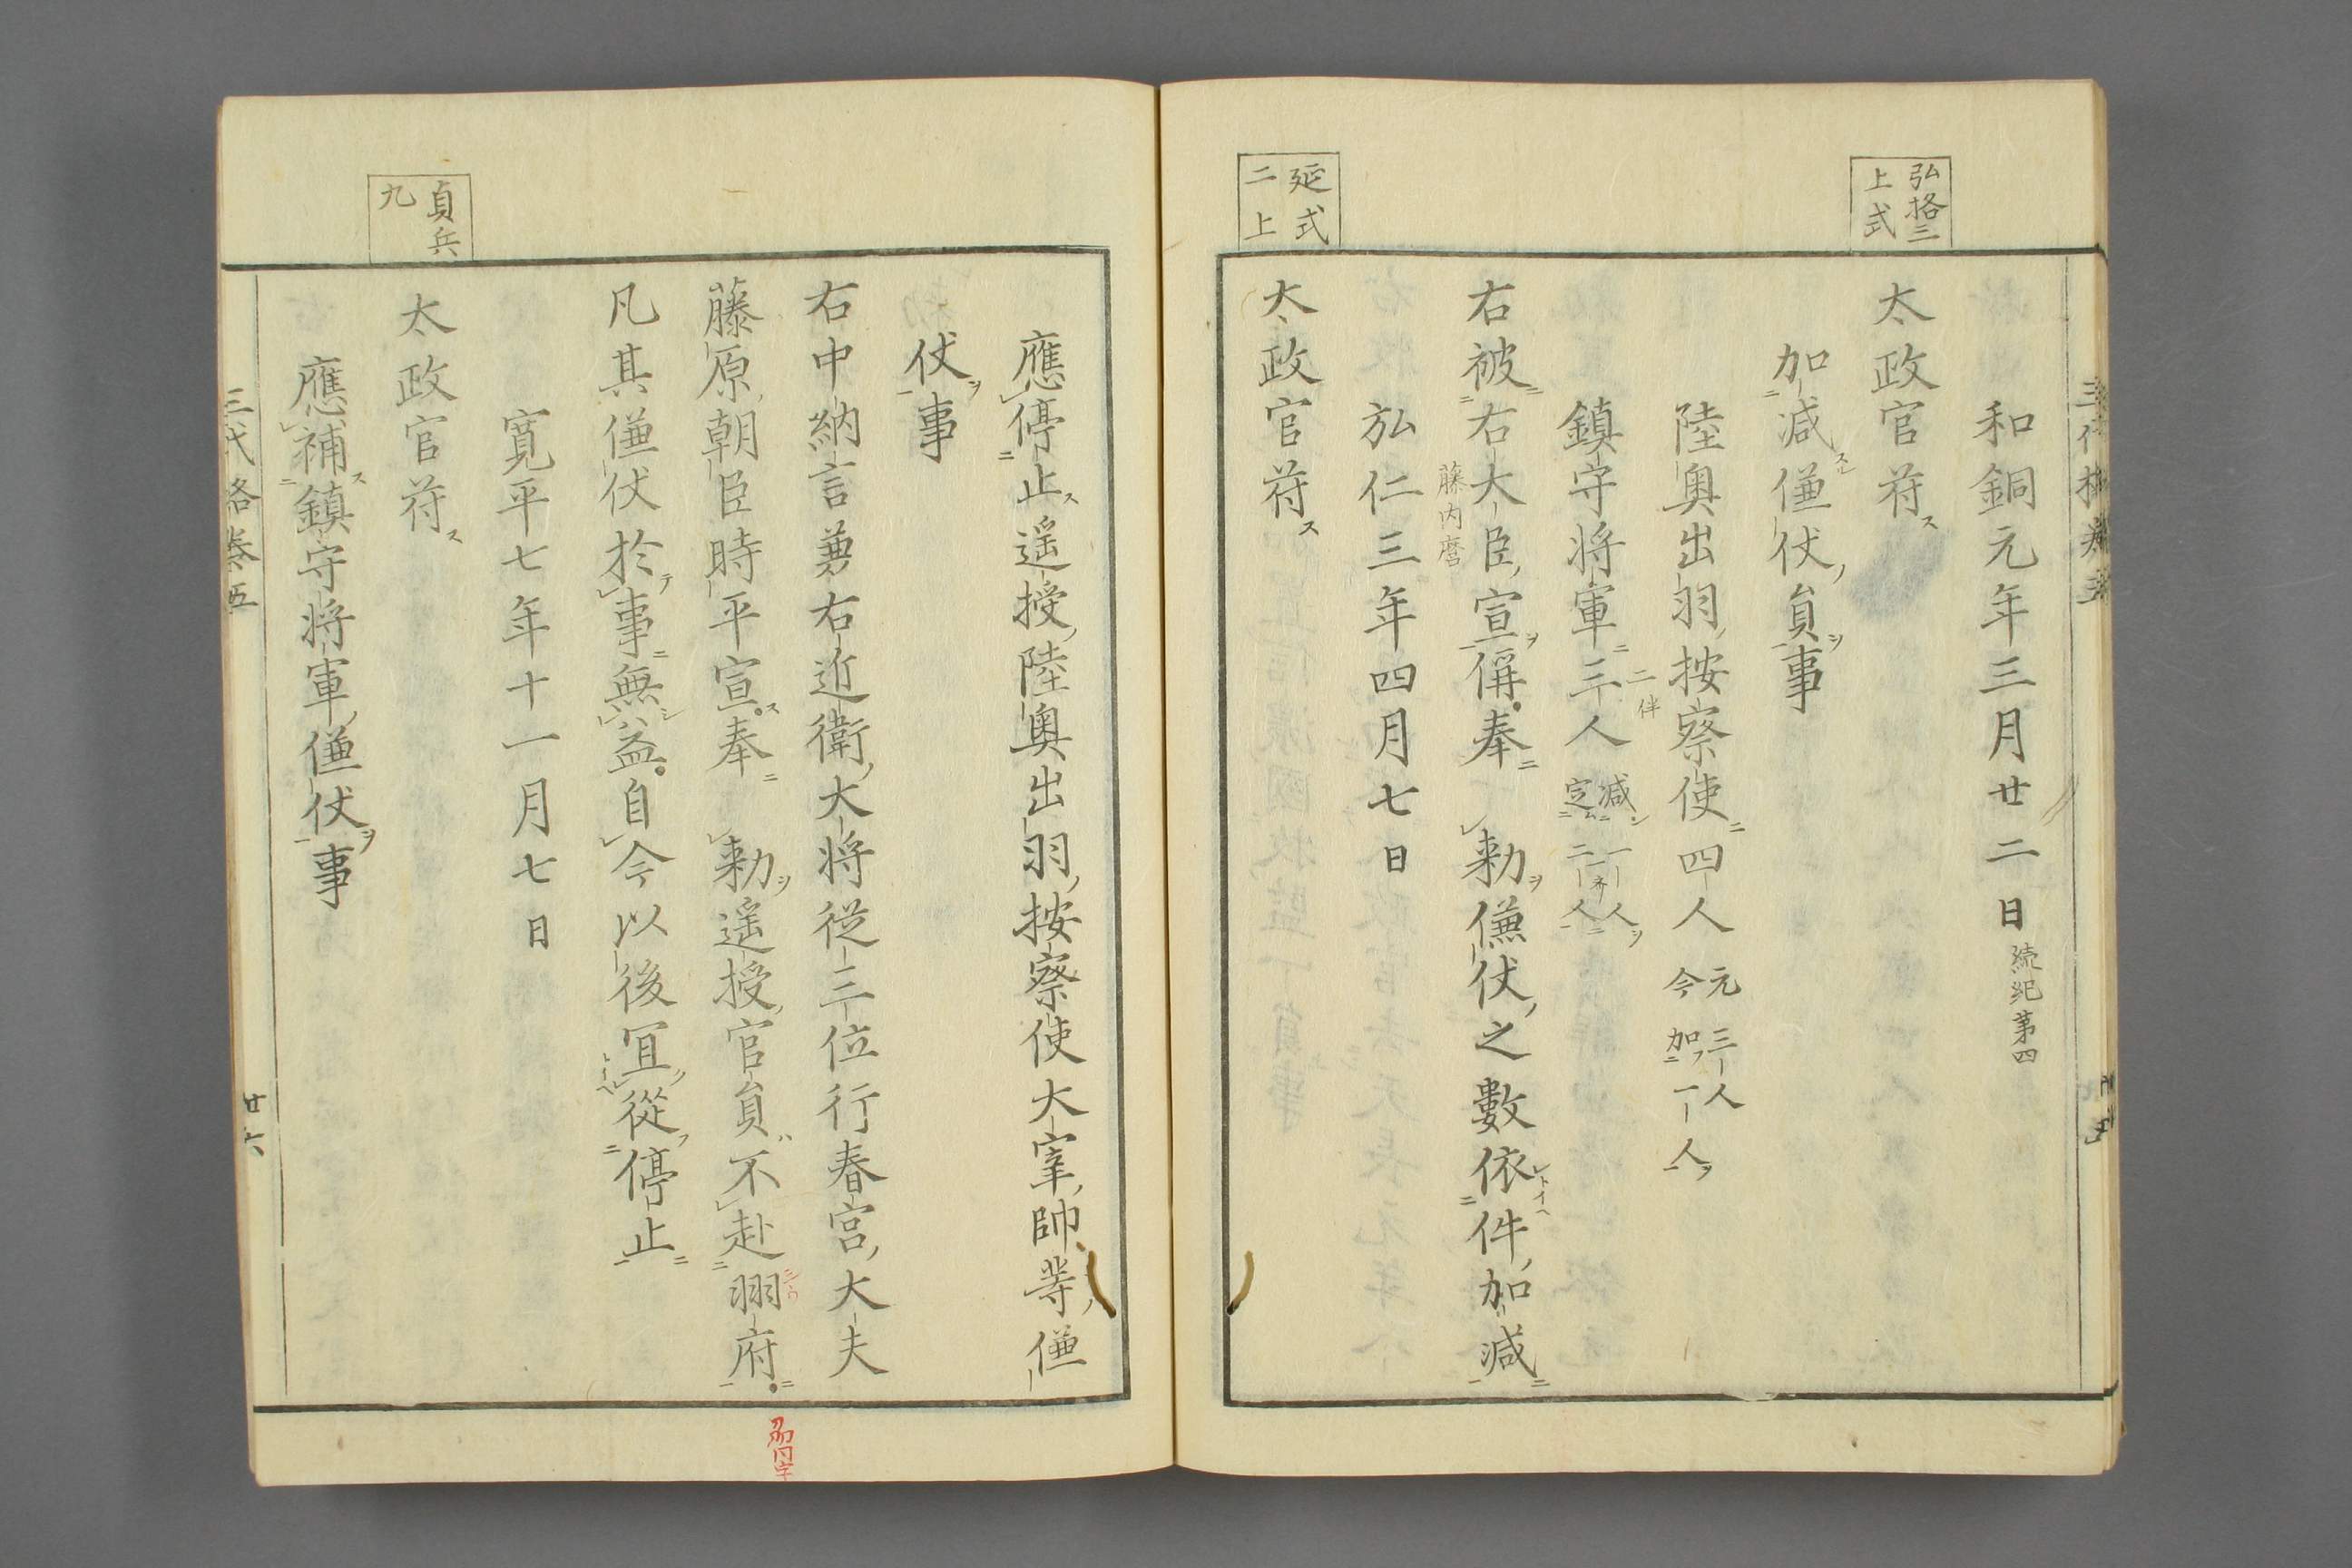 弘格三
上式
和銅元年三月廿二日 続紀第四
太政官符ス
加減スル傔仗ノ員ヲ事
陸奥出羽按察使ニ四人 元三人 今加一人ヲ
二 伴
鎮守将軍ニ三人 減シ一人ヲ 定二人
右被右大臣宣ヲ偁奉勅ヲ傔仗之數依件加減
藤内麿
弘仁三年四月七日
延式
二上
太政官符ス
應停止ス遥授陸奥出羽按察使大宰帥等傔
仗ヲ事
右中納言兼右近衛大将従三位行春宮大夫
藤原朝臣時平宣ス奉勅遥授官員ハ不赴䎉府
凡其傔仗於テ事ニ無益自今以後冝從停止
寛平七年十一月七日
貞兵
九
太政官符ス
應補ス鎮守将軍傔仗ヲ事
三代格巻五
廿六